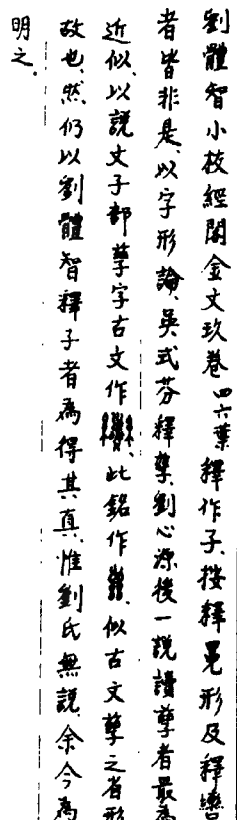 劉體智小校經閣金文玖卷四六葉釋作子、按釋冕形及釋
者皆非是、以字形論、吳式芬釋孳、劉心源後一說讀孳者最為
近似、以說文子部孳字古文作、此銘作、似古文孳之省形
故也、然仍以劉體智釋子者為得其真、惟劉氏無說、余今為
明之、